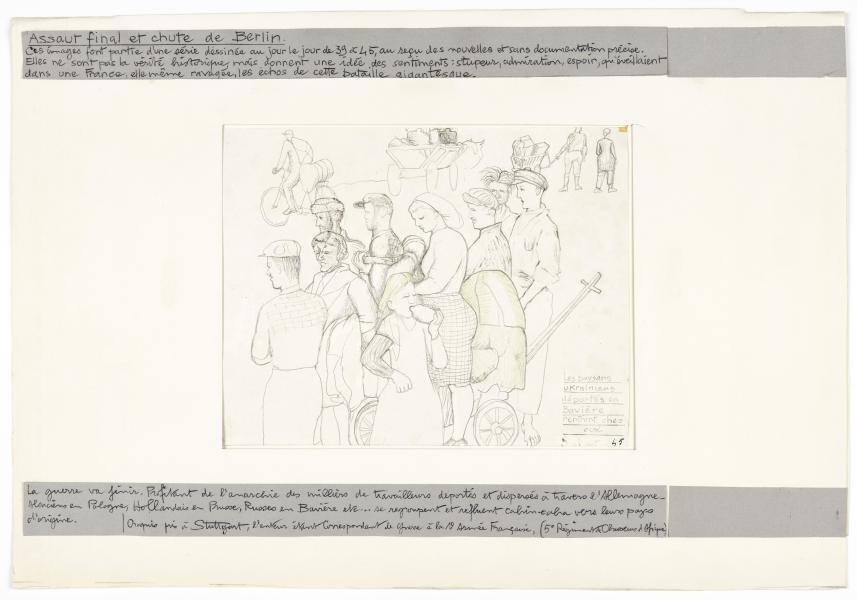 Assaut final et chute de Berlin.
Ces images font partie d'une série dessinée au jour le jour de 39 à 45, au reçu des nouvelles et sans documentation précise.
Elles ne sont pas la vérité historique, mais donnent une idée des sentiments : stupeur, admiration, espoir, qu'éveillaient
dans une France, elle même ravagée, les échos de cette bataille gigantesque.
Les paysans
ukrainiens
déportés en
Bavière
rentrent chez
eux
45
La guerre va finir. Profitant de l'anarchie des milliers de travailleurs deportés et dispersés à travers l'Allemagne_
Alsaciens en Pologne, Hollandais en Prusse, Russes en Bavière etc... se regroupent et refluent cahin-caha vers leurs pays
d'origine.
Croquis pris à Stuttgart, l'auteur étant Correspondant de Guerre à la 1ère Armée Française, (5e Régiment de Chasseurs d'Afrique)